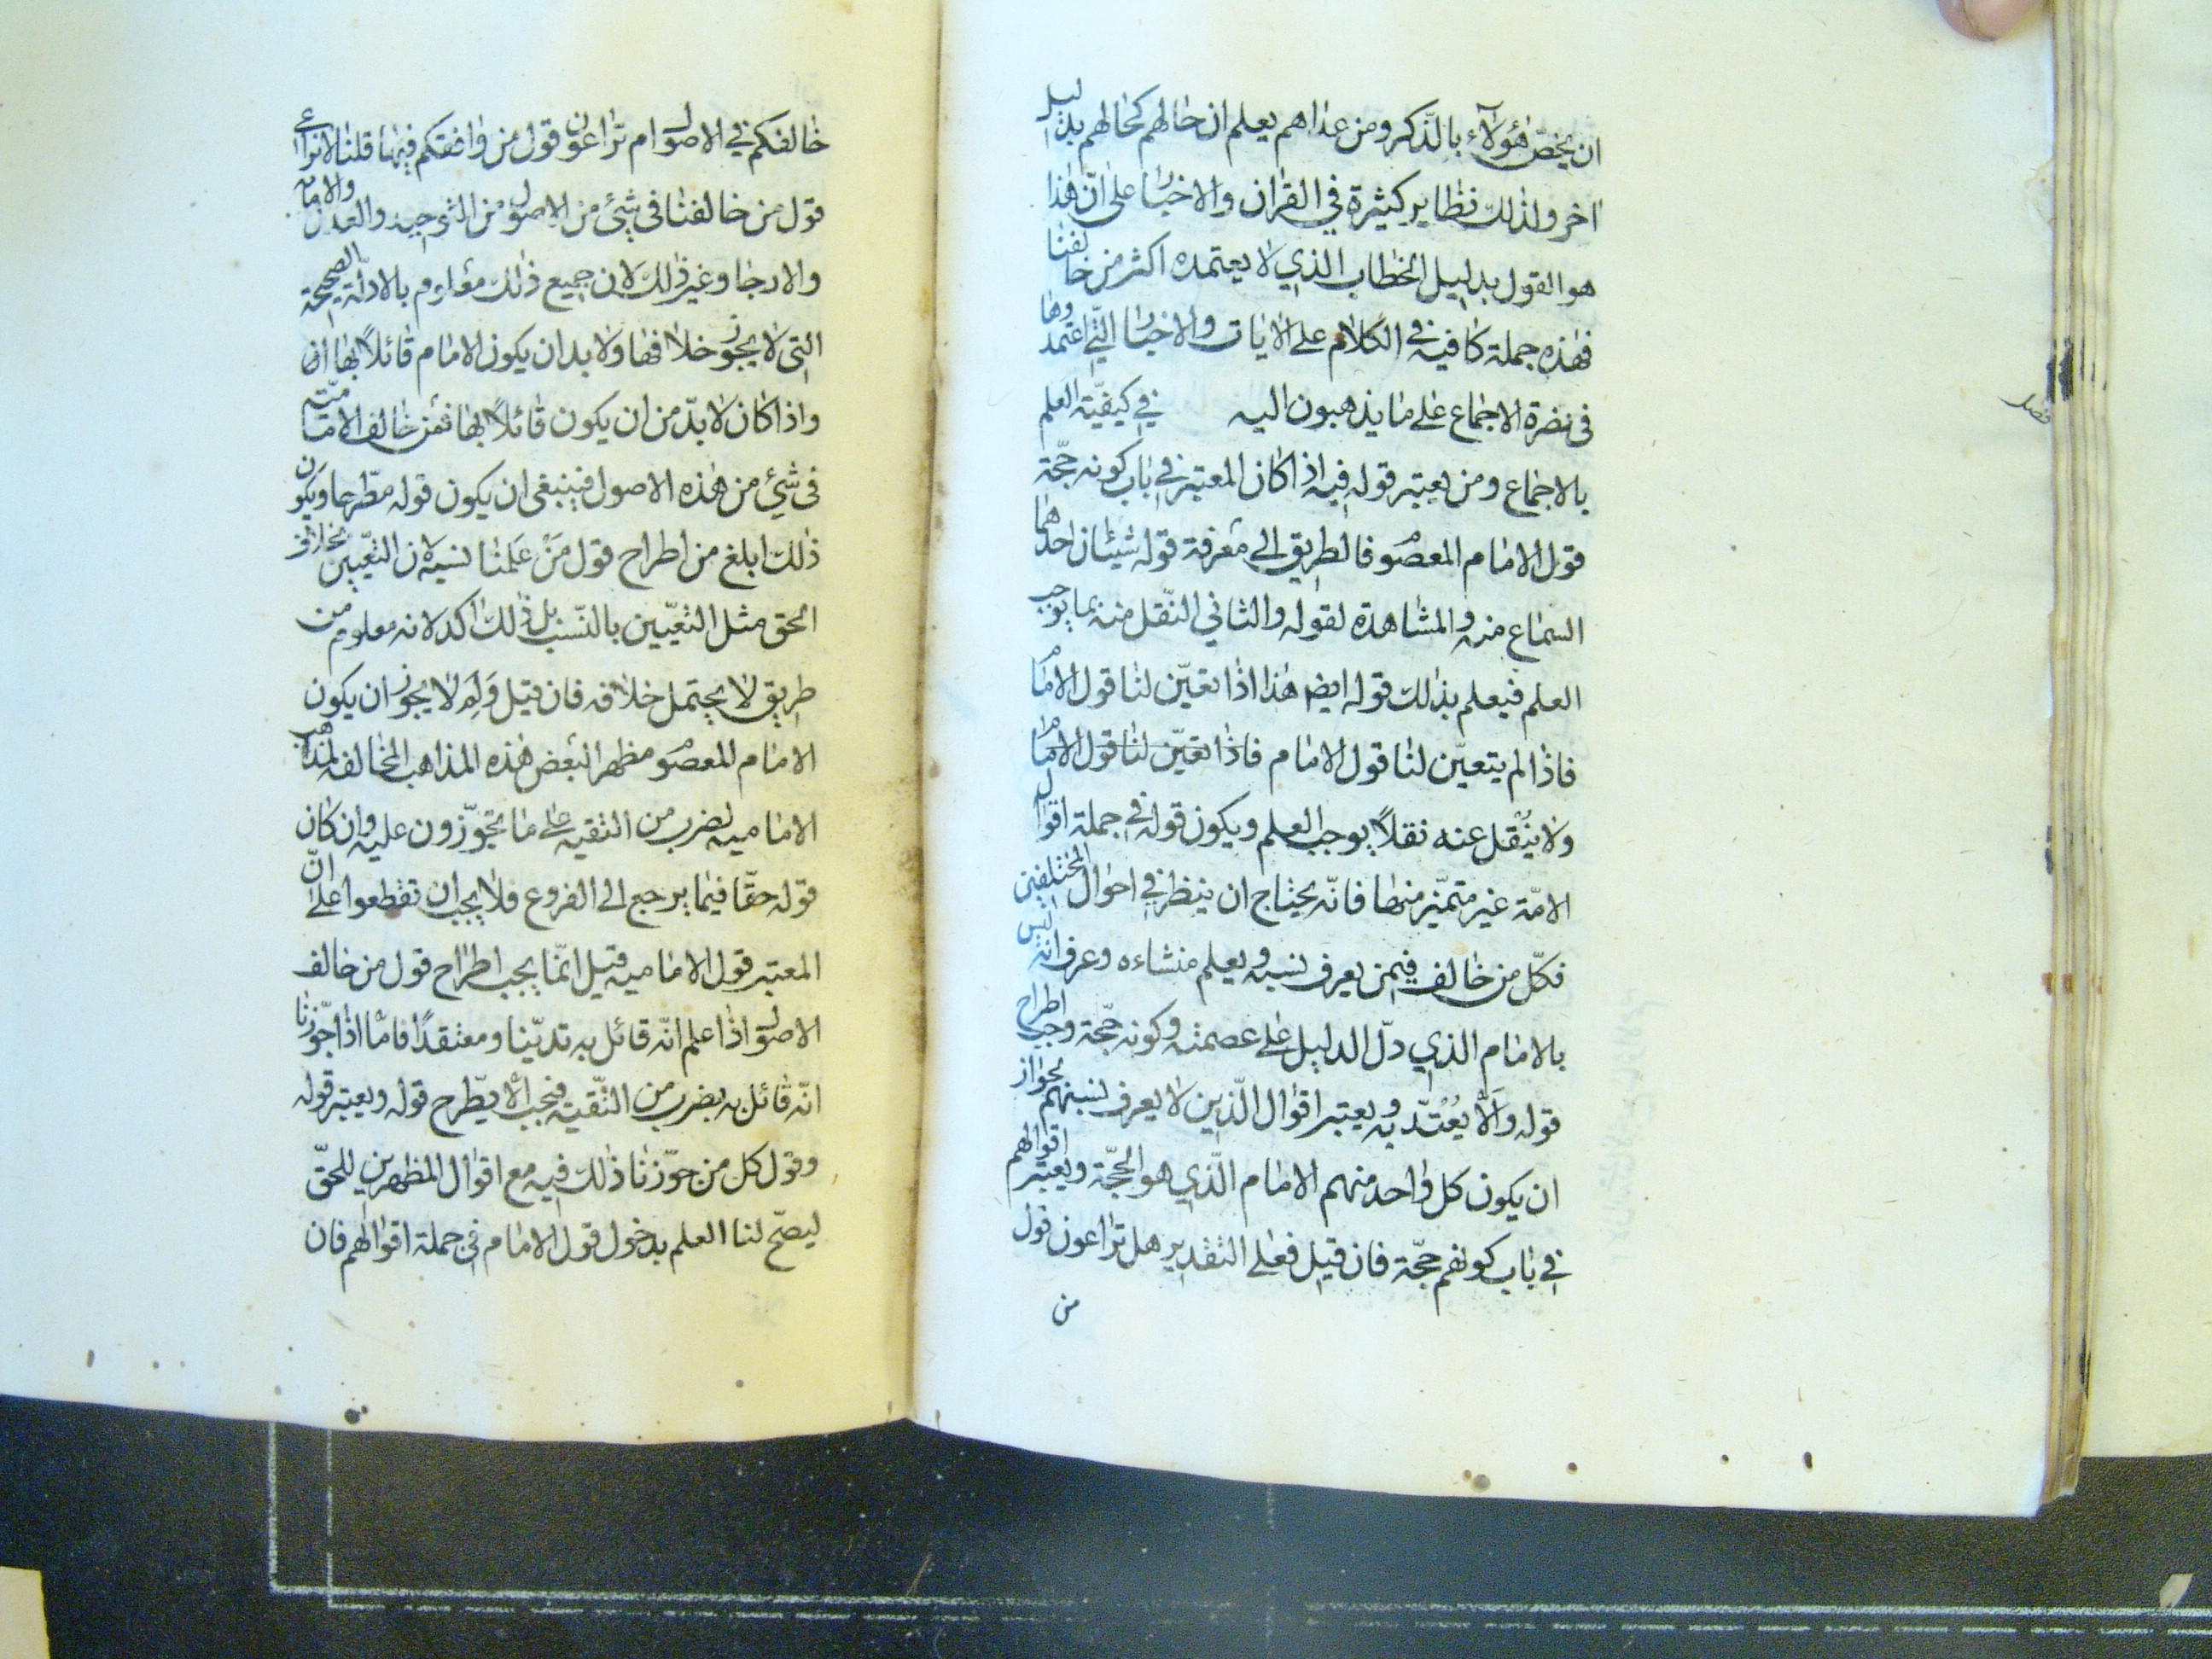 ان يخصّ هؤلاء بالذّكر ومن عداهم يعلم ان حالهم كحالهم بدليل
اخر ولذلك نظاير كثيرة في القران والاخبار على انّ هذا
هو القول بدليل الخطاب الذي لا يعتمده اكثر من خالفنا
فهذه جملة كافيه في الكلام على الايات والاخبار التّي اعتمدوها
في نصرة الاجماع على ما يذهبون اليه في كيفيّة العلم
فصل
بالاجماع ومن يعتبر قوله فيه اذا كان المعتبر في باب كونه حجّة
قول الامام المعصوم فالطريق الى معرفة قوله شيئان احدهما
السماع منه والمشاهدة لقوله والثاني النّقل منه بما يوجب
العلم فيعلم بذلك قوله ايض هذا اذا تعيّن لنا قول الامام
فاذا لم يتعيّن لنا قول الامام فاذا تعيّن لنا قول الامام
ولا يُنْقل عنه نقلاً يوجب العلم ويكون قوله في جملة اقوال
الامّة غير متميّز منها فانّه يحتاج ان ينظر في احوال المختلفين
فكلّ من خالف فيمن يعرف نسبه ويعلم منشاءه وعرف انّه ليس
بالامام الذي دلّ الدليل على عصمته وكونه حجّة وجب اطراح
قوله والّا يُعْتدّ به ويعتبر اقوال الّذين لا يعرف نسبهم لجواز
ان يكون كل واحد منهم الامام الّذي هو الحجّة ويعتبر اقوالهم
في باب كونهم حجّة فان قيل فعلى التقدير هل تراعون قول
من
خالفكم في الاصول ام تراعون قول من وافقكم فيها قلنا لا نراعي
قول من خالفنا في شئ من الاصول من التوحيد والعدل والامامه
والارجا وغير ذلك لان جميع ذلك معلوم بالادلّة الصحيحة
التي لا يجوز خلافها ولا بد ان يكون الامام قائلاً بها ان
واذا كان لا بدّ من ان يكون قائلاً بها فمن خالف الامامّيّه
في شئ من هذه الاصول فينبغي ان يكون قوله مطّرحا ويكون
ذلك ابلغ من اطراح قول مَنْ عَلمنا نسبه لان التعّيين بخلاف
الحق مثل التعّيين بالنّسب بل ذلك اكد لانه معلوم من
طريق لا يحتمل خلافه فان قيل وَلِمَ لا يجوز ان يكون
الامام المعصوم مظهر البعض هذه المذاهب المخالفه لمذاهب
الاماميه لضرب من التقيه على ما تجوّزون عليه وان كان
قوله حقّا فيما يرجع الى الفروع فلا يجب ان تقطعوا على انّ
المعتبر قول الاماميه قيل انّما يجب اطراح قول من خالف
الاصول اذا علم انّه قائل به تديّنا ومعتقدًا فامّا اذا جوّزنا
انّه قائل به بضرب من التّقيّه فيجب الّا يطّرح قوله ويعتبر قوله
وقول كل من جوّزنا ذلك فيه مع اقوال المظهرين للحقّ
ليصحّ لنا العلم بدخول قول الامام في جملة اقوالهم فان